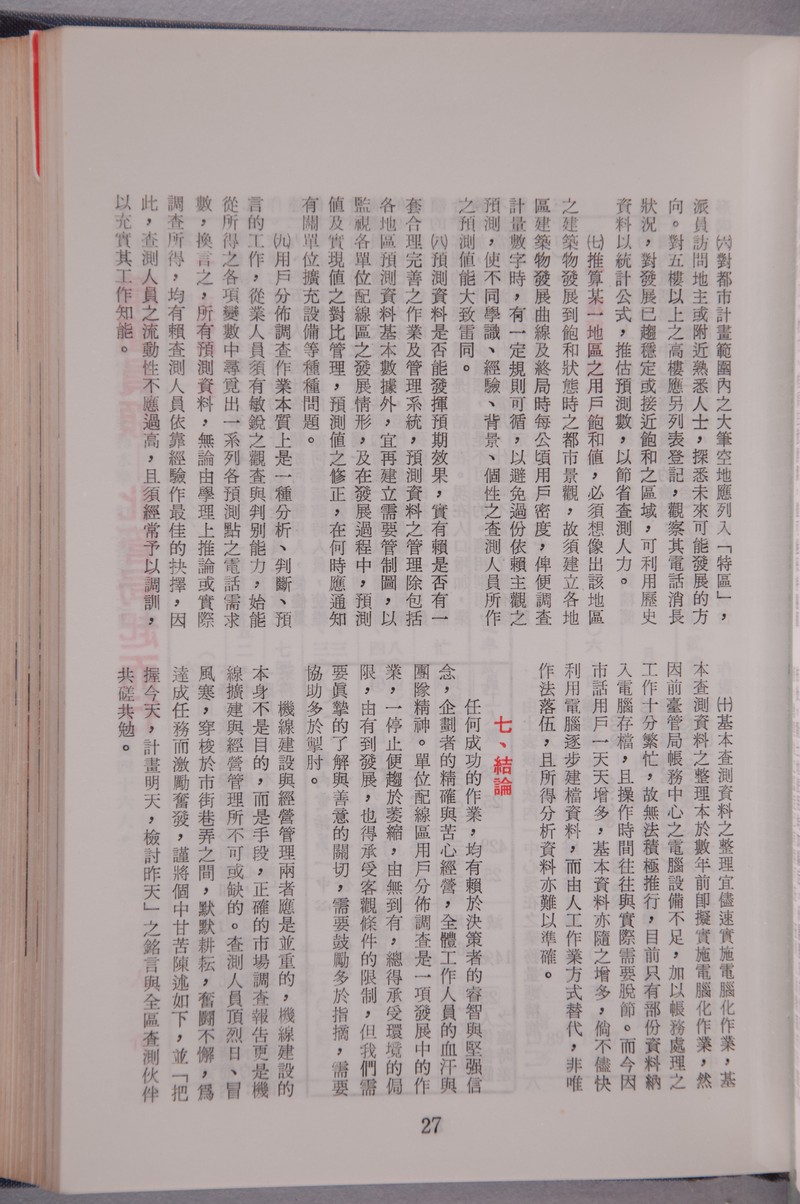 ㈥對都市計畫範圍內之大筆空地應列入「特區」，
派員訪問地主或附近熟悉人士，探悉未來可能發展的方
向。對五樓以上之高樓應另列表登記，觀察其電話消長
狀況，對發展已趨穩定或接近飽和之區域，可利用歷史
資料以統計公式，推估預測數，以節省查測人力。
㈦推算某一地區之用戶飽和值，必須想像出該地區
之建築物發展到飽和狀態時之都市景觀，故須建立各地
區建築物發展曲線及終局時每公頃用戶密度，俾便調查
計量數字時，有一定規則可循，以避免過份依賴主觀之
預測，使不同學識、經驗、背景、個性之查測人員所作
之預測值能大致雷同。
㈧預測資料是否能發揮預期效果，實有賴是否有一
套合理完善之作業及管理系統，預測資料之管理除包括
各地區預測資料基本數據外，宜再建立需要管制圖，以
監視各單位配線區之發展情形，及在發展過程中，預測
值及實現值之對比管理，預測值之修正，在何時應通知
有關單位擴充設備等種種問題。
㈨用戶分佈調查作業本質上是一種分析、判斷、預
言的工作，從業人員須有敏銳之觀查與判別能力，始能
從所得之各項變數中尋覓出一系列各預測點之電話需求
數，換言之，所有預測資料，無論由學理上推論或實際
調查所得，均有賴查測人員依靠經驗作最佳的抉擇，因
此，查測人員之流動性不應過高，且須經常予以調訓，
以充實其工作知能。
㈩基本查測資料之整理宜儘速實施電腦化作業，基
本查測資料之整理本於數年前卽擬實施電腦化作業，然
因前臺管局帳務中心之電腦設備不足，加以帳務處理之
工作十分繁忙，故無法積極推行，目前只有部份資料納
入電腦存檔，且操作時間往往與實際需要脫節。而今因
市話用戶一天天增多，基本資料亦隨之增多，倘不儘快
利用電腦逐步建檔資料，而由人工作業方式替代，非唯
作法落伍，且所得分析資料亦難以準確。
七、結論
任何成功的作業，均有賴於決策者的睿智與堅强信
念，企劃者的精確與苦心經營，全體工作人員的血汗與
團隊精神。單位配線區用戶分佈調查是一項發展中的作
業，一停止便趨於萎縮，由無到有，總得承受環境的侷
限，由有到發展，也得承受客觀條件的限制，但我們需
要眞摯的了解與善意的關切，需要鼓勵多於指摘，需要
協助多於掣肘。
機線建設與經營管理兩者應是並重的，機線建設的
本身不是目的，而是手段，正確的市場調查報告更是機
線擴建與經營管理所不可或缺的。查測人員頂烈日、冒
風寒，穿梭於市街巷弄之間，默默耕耘，奮鬭不懈，爲
達成任務而激勵奮發，謹將個中甘苦陳述如下，並「把
握今天，計畫明天，檢討昨天」之銘言與全區查測伙伴
共磋共勉。
27